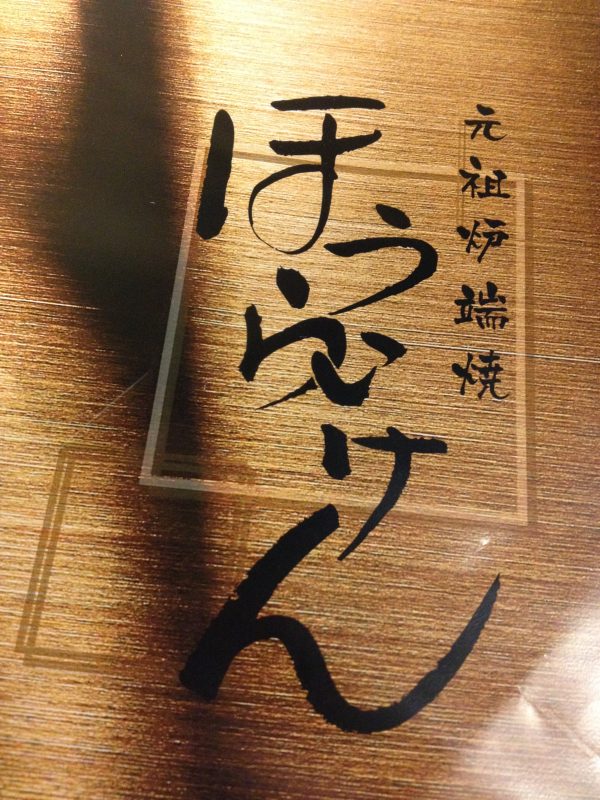 元祖炉端焼
ほうらいけん